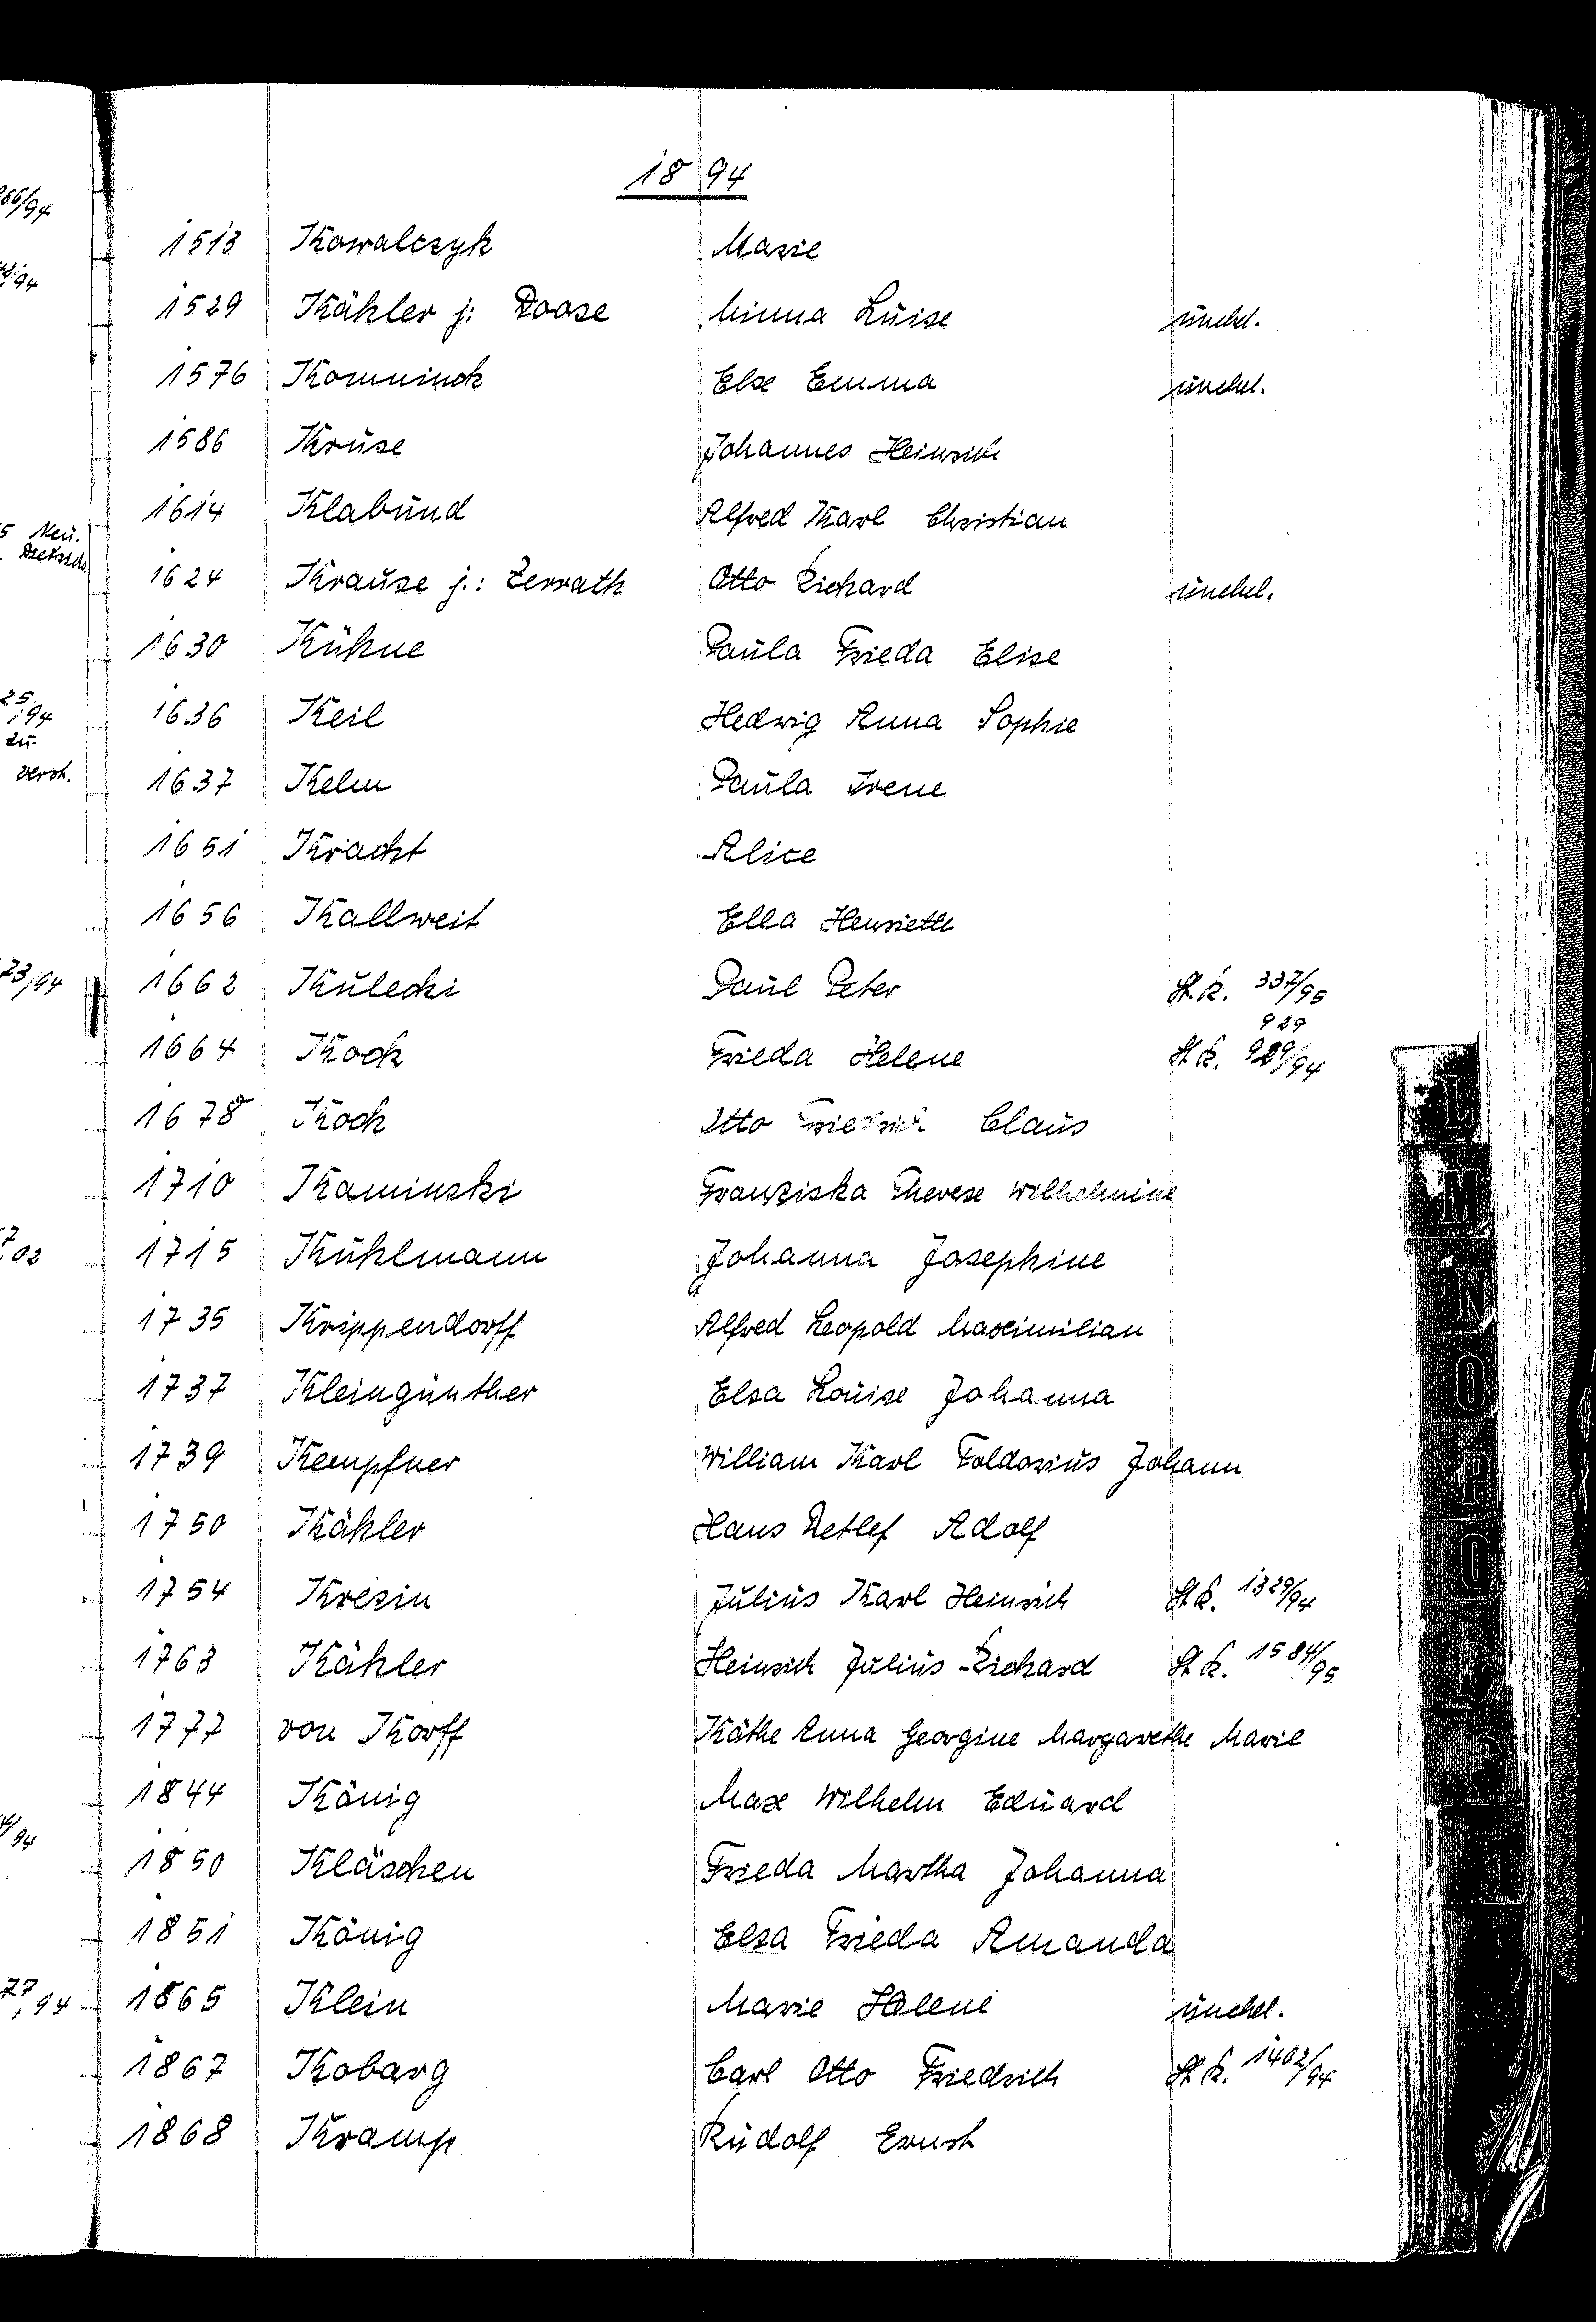 1894
1513 Kowalczyk Marie
1529 Kähler j: Doose Minna Luise unehel.
1576 Komninck Else Emma unehel.
1586 Kruse Johannes Heinrich
1614 Klabund Alfred Karl Christian
1624 Krause j.: Zerrath Otto Richard unehel.
1630 Kühne Paula Frieda Elise
1636 Keil Hedwig Anna Sophie
1637 Kelm Paula Irene
1651 Kracht Alice
1656 Kallweit Ella Henriette
1662 Kulecki Paul Peter St. R. 337/95
929
1664 Kock Frieda Helene St R. 929/94
1678 Kock Otto Friedrich Claus
1710 Kaminski Franziska Therese Wilhelmine
1715 Kuhlmann Johanna Josephine
1735 Krippendorff Alfred Leopold Maximilian
1737 Kleingünther Elsa Louise Johanna
1739 Kempfner William Karl Foldorius Johann
1750 Kähler Hans Detlef Adolf
1754 Kresin Julius Karl Heinrich St R. 1329/94
1763 Kähler Heinrich Julius Richard St R. 1584/95
1777 von Korff Käthe Anna Georgine Margarethe Marie
1844 König Max Wilhelm Eduard
1850 Kläschen Frieda Martha Johanna
1851 König Elsa Frieda Amanda
1865 Klein Marie Helene unehel.
1867 Kobarg Carl Otto Friedrich St R. 1402/94
1868 Kramp Rudolf Ernst
L
M
N
O
P
Q
R